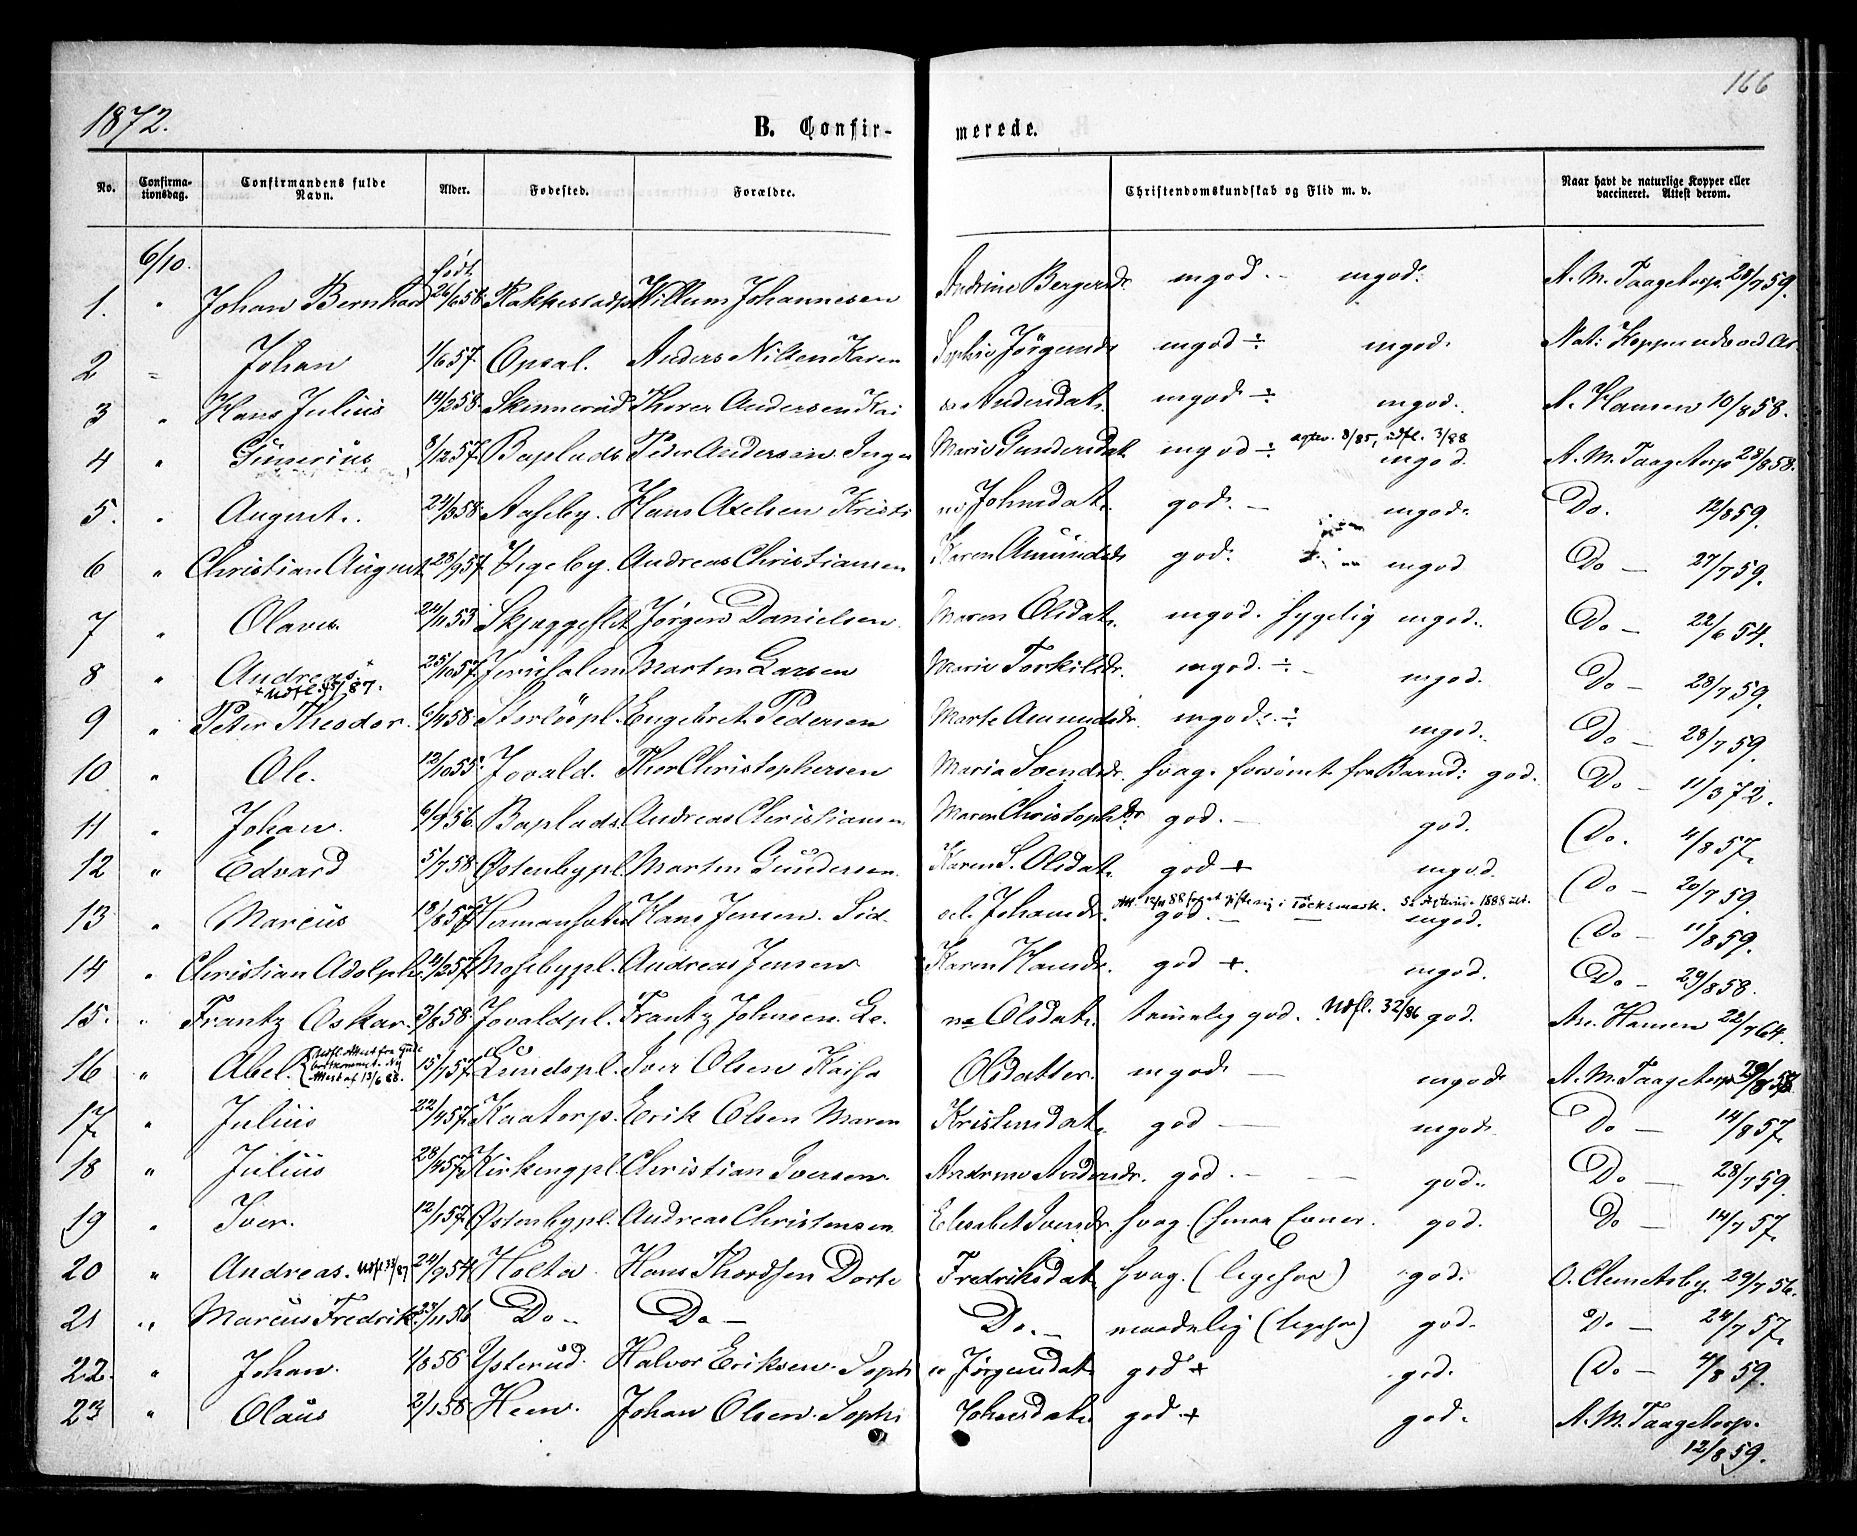 166
1872.
B. Confir- merede.
No. Confirma- tionsdag. Confirmandens fulde Navn. Alder. Fødested. Forældre. Christendomskundskab og Flid m. v. Naar havt de naturlige Kopper eller vaccineret. Attest derom.
6/10. født
1. " Johan Bernhard 26/6 58. Rakkestadpl Willum Johannesen Andrine Bergersdr. mgod. - mgod. A. M. Taagetorp. 28/7 59.
2 " Johan 1/6 57. Opsal. Anders Nilsen Karen Sophie Jörgensdr mgod ÷ mgod. Nat: Kopper
3 " Hans Julius 14/2 58. Skinnerud Thorer Andersen Kai sa Andersdat. mgod ÷ mgod. N. Hansen 10/8 58.
4 " Gunerius 8/12 57. Bøplads Peder Andersen Inger Marie Gundersdat. mgod ÷ udfl. 3/88 mgod. A. M. Taagetorp 28/8 58.
5. " August. 24/3 58. Aaseby. Hans Axelsen Kristi ne Johnsdat. god. - mgod. Do. 12/8 59.
6 " Christian August 28/9 57. Higeby. Andreas Christiansen Karen Amundsdr god. mgod Do - 27/7 59.
7 " Olaves. 24/11 53 Skjæggeflet Jørgen Danielsen. Maren Olsdat. mgod. sygelig mgod. Do - 22/6 54.
8 " Andreas. 25/10 57. Jerusalem Martin Larsen Marie Torkilsdr. mgod. ÷ - mgod. Do - 28/7 59.
Udfl. 45/87.
9 " Peter Theodor. 6/4 58. Storlöspl. Engebret Pedersen Marte Amundsdr. mgod. ÷ mgod. Do - 28/7 59.
10 " Ole. 12/10 55. Jovald. Thor Christophersen Maria Svendsdr. svag. forsömt fra Barnd: god. Do - 11/3 72.
11 " Johan. 6/9 56. Bøplads. Andreas Christiansen Maren Christophdr god. - god. Do. 4/8 57.
12 " Edvard 5/7 58. Østenbypl. Martin Gundersen. Karen S. Olsdat. god + mgod. Do - 20/7 59.
13 " Marcus 18/8 57. Hans Jensen. Sid. sel Johansdr. god. - mgod. Do - 11/8 59.
14 " Christian Adolph 12/3 57. Mosebypl. Andreas Jensen Karen Hansdr. god +. mgod. Do - 29/8 58.
15. " Frantz Oskar. 3/8 58. Jovaldpl. Frantz Johnsen. Le. na Olsdat. temmelig god. Udfl. 32/86 god. An. Hansen 22/7 64.
16 " Abel. Udfl. Attest fra Gude bortkommet. Ny Attest af 13/6 88. 15/1 57. Lundspl. Iver Olsen Kaisa Olsdatter. mgod. - mgod. A. M. Taagetorp 29/8 58.
17 " Julius 22/4 57. Kaatorp. Erik Olsen Maren Kristensdat. god - mgod. Do - 14/8 57.
18 " Julius 28/4 57. Kirkengpl. Christian Iversen. Andrine Andersdr. god. - god. Do - 28/7 59.
19 " Iver. 12/1 57. Østenbypl. Andreas Christensen Elisabet Svendsdr. svag. (smaa Evner. god. Do - 14/7 57.
20 " Andreas. Udfl 33/87 24/9 54. Holta. Hans Thordsen Dorte Fredriksdat. svag. (legesöe) god. O. Clemetsby. 29/7 56.
21 " Marcus Fredrik. 23/11 56 Do - Do - Do. - maadelig (legesöe) god. Do - 24/7 57.
22. " Johan. 1/8 56 Ysterud. Halvor Eriksen. Sophi e Jørgensdat god + god. Do - 4/8 59.
23 " Olaus 2/1 58. Heen. Johan Olsen. Sophi Johnsdat. god + god. A. M. Taagetorp. 12/8 59.